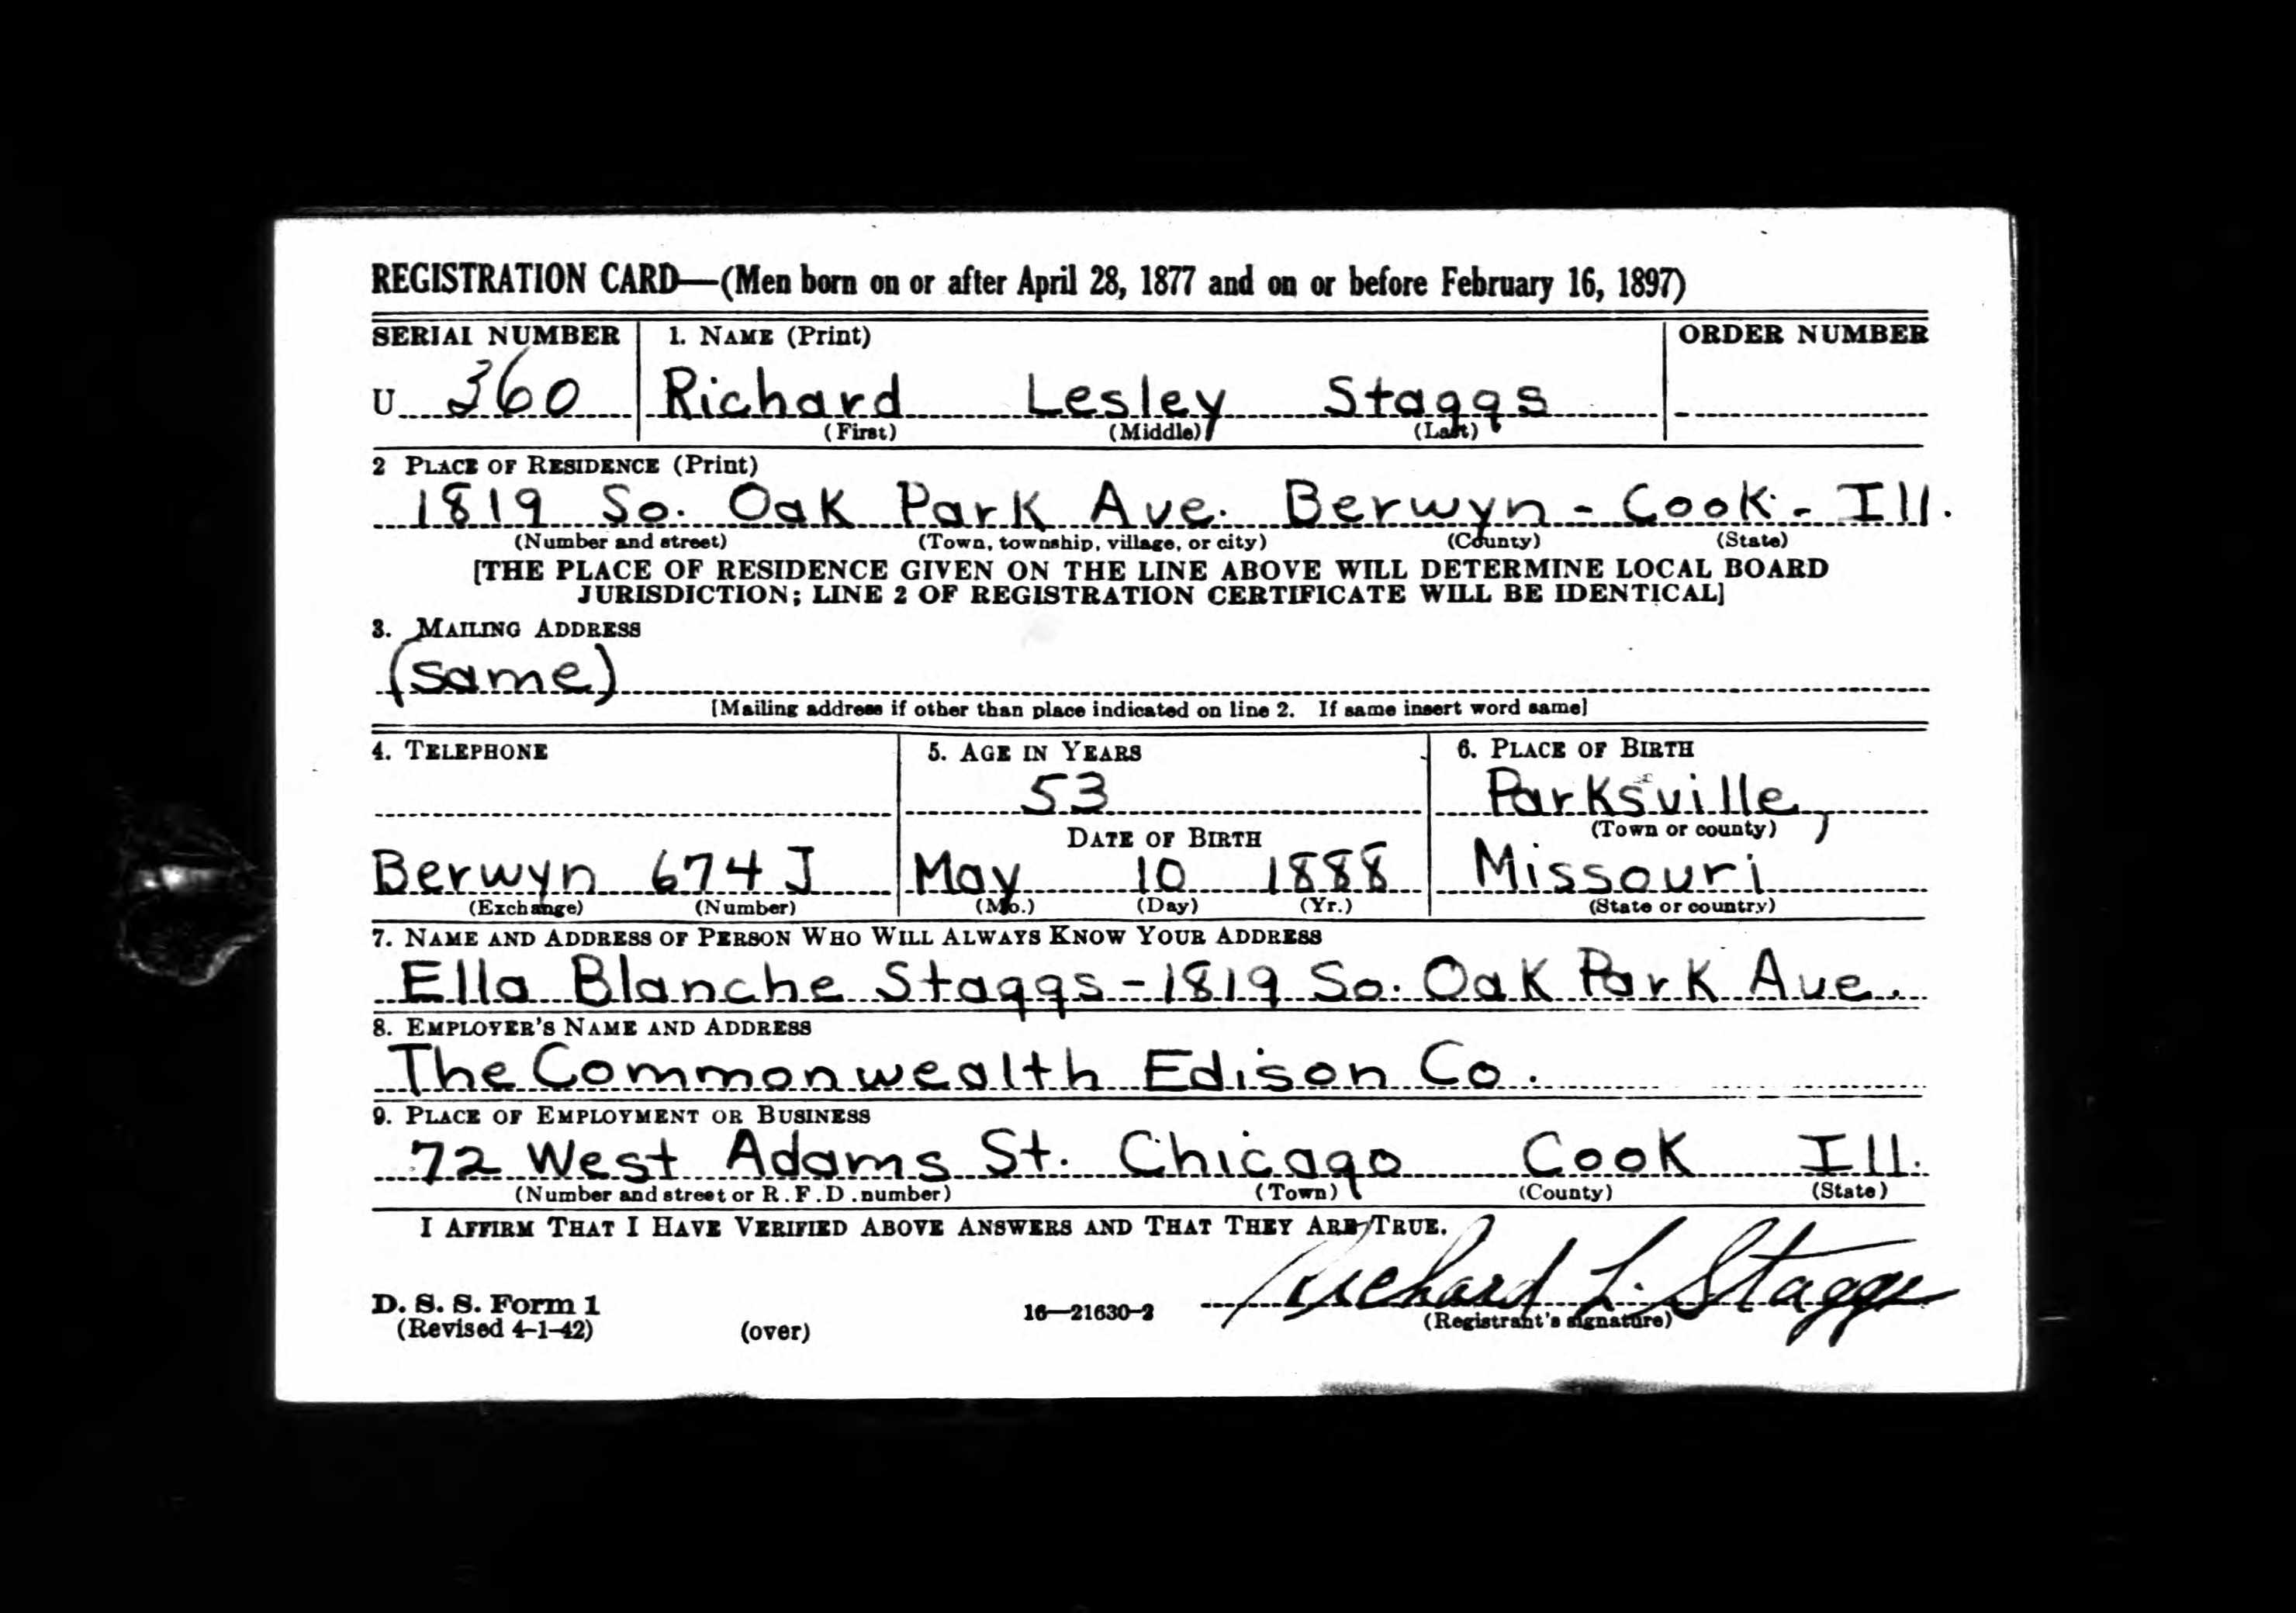 REGISTRATION CARD—(Men born on or after April 28, 1877 and on or before February 16, 1897)
SERIAL NUMBER 1. NAME (Print) ORDER NUMBER
U 360 Richard Lesley Staggs
(First) (Middle) (Last)
2 PLACE OF RESIDENCE (Print)
1819 So. Oak Park Ave. Berwyn - Cook - Ill.
(Number and street) (Town, township, village, or city) (County) (State)
[THE PLACE OF RESIDENCE GIVEN ON THE LINE ABOVE WILL DETERMINE LOCAL BOARD
JURISDICTION; LINE 2 OF REGISTRATION CERTIFICATE WILL BE IDENTICAL]
3. MAILING ADDRESS
(same)
[Mailing address if other than place indicated on line 2. If same insert word same]
4. TELEPHONE 5. AGE IN YEARS 6. PLACE OF BIRTH
53 Parksville,
DATE OF BIRTH (Town or county)
Berwyn 674 J May 10 1888 Missouri
(Exchange) (Number) (Mo.) (Day) (Yr.) (State or country)
7. NAME AND ADDRESS OF PERSON WHO WILL ALWAYS KNOW YOUR ADDRESS
Ella Blanche Staggs - 1819 So. Oak Park Ave.
8. EMPLOYER'S NAME AND ADDRESS
The Commonwealth Edison Co.
9. PLACE OF EMPLOYMENT OR BUSINESS
72 West Adams St. Chicago Cook Ill.
(Number and street or R. F. D. number) (Town) (County) (State)
I AFFIRM THAT I HAVE VERIFIED ABOVE ANSWERS AND THAT THEY ARE TRUE.
Richard L. Staggs
D. S. S. Form 1 16—21630-2 (Registrant's signature)
(Revised 4-1-42) (over)